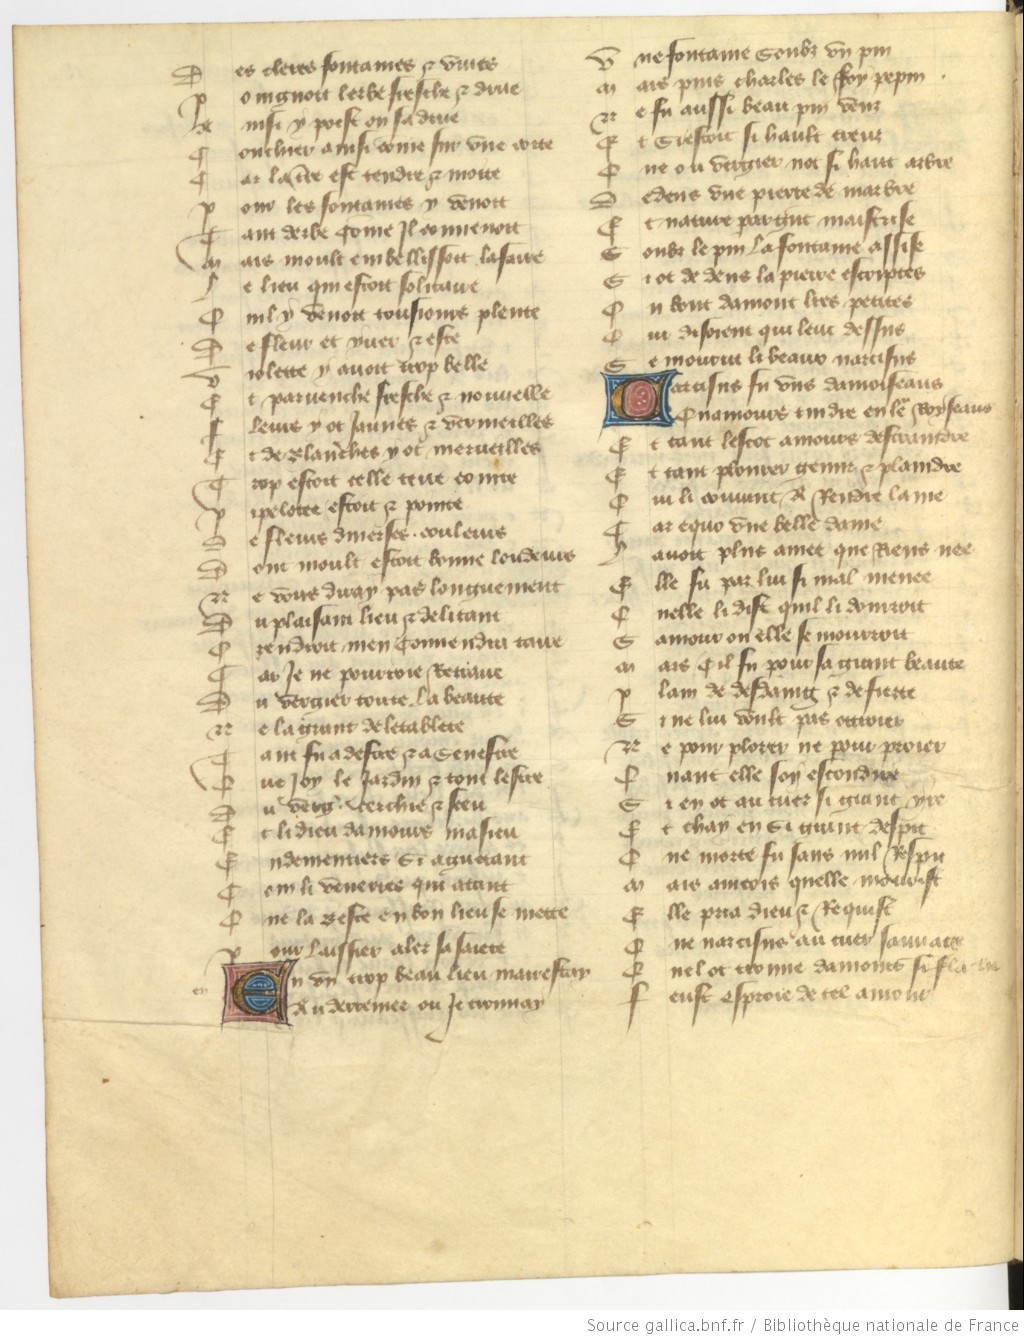 Des cleres fontaines & viues
Poingnoit lerbe fresche & drue
Ainsi y poest on sa drue
Couchier ainsi come sur vne coite
Car la tre est tendre & moite
Pour les fontaines y venoit
Tant derbe come Il conuenoit
Mais moult embellissoit lafaire
Le lieu qui estoit solitaire
Quil y venoit tousiours plente
De fleur et yuer & este
Violette y auoit trop belle
Et paruenche fresche & nouuelle
Fleurs y ot Jaunes & vermeilles
Et de blanches y ot merueilles
Trop estoit celle terre cointe
Pipelotee estoit & pointe
De fleurs diuerses couleurs
Dont moult estoit bonne loudeurs
Ne vous diray pas longuement
Du plaisant lieu & delitant
Orendroit men conuendra taire
Car Je ne pourroie Retraire
Du vergier toute la beaute
Ne la grant deletablete
Tant fu a destre & a senestre
Que Joy le Jardin & tout lestre
Du verg cerchie & sceu
Et li dieu damours masieu
Endementiers si aguetant
Com li venerres qui atant
Que la beste en bon lieu se mette
Pour laissier aler sa saiete
En vn trop beau lieu marestay
Au derrenier ou Je trouuay
Vne fontaine soubz vn pin
Mais puis charles le Roy pepin
Ne fu aussi beau pin veuz
Et si estoit si hault creuz
Que ou vergier not si haut arbre
Dedens vne pierre de marbre
Et nature par grant maistrise
Soubz le pin la fontaine assise
Si ot de dens la pierre escriptes
Ou bout damont lres petites
Qui disoient qui leur dessus
Se mourut li beaux narcisus
Narcisus fu vns damoiseaus
Quamours tindre en le Royseaus
Et tant lescot amours destraindre
Et tant plourer gemir & plaindre
Qui li conuint A Rendre lame
Car equo vne belle dame
Lauoit plus amet que Riens nee
Elle fu par lui si mal menee
Quelle li dist quil li donrroit
Samour ou elle se mourroit
Mais Cil fu pour sa grant beaute
Plain de desdaing & de fierte
Si ne lui voult pas ottroier
Ne pour plorer ne pour proier
Quant elle soy escondire
Si en ot au cuer si grant yre
Et chay en si grant despit
Que morte fu sans nul Respit
Mais aincois quelle mourust
Elle pria dieu & Requist
Que narcisus au cuer sauuage
Quel ot trouue damours si flache
Feust esproie de tel amour